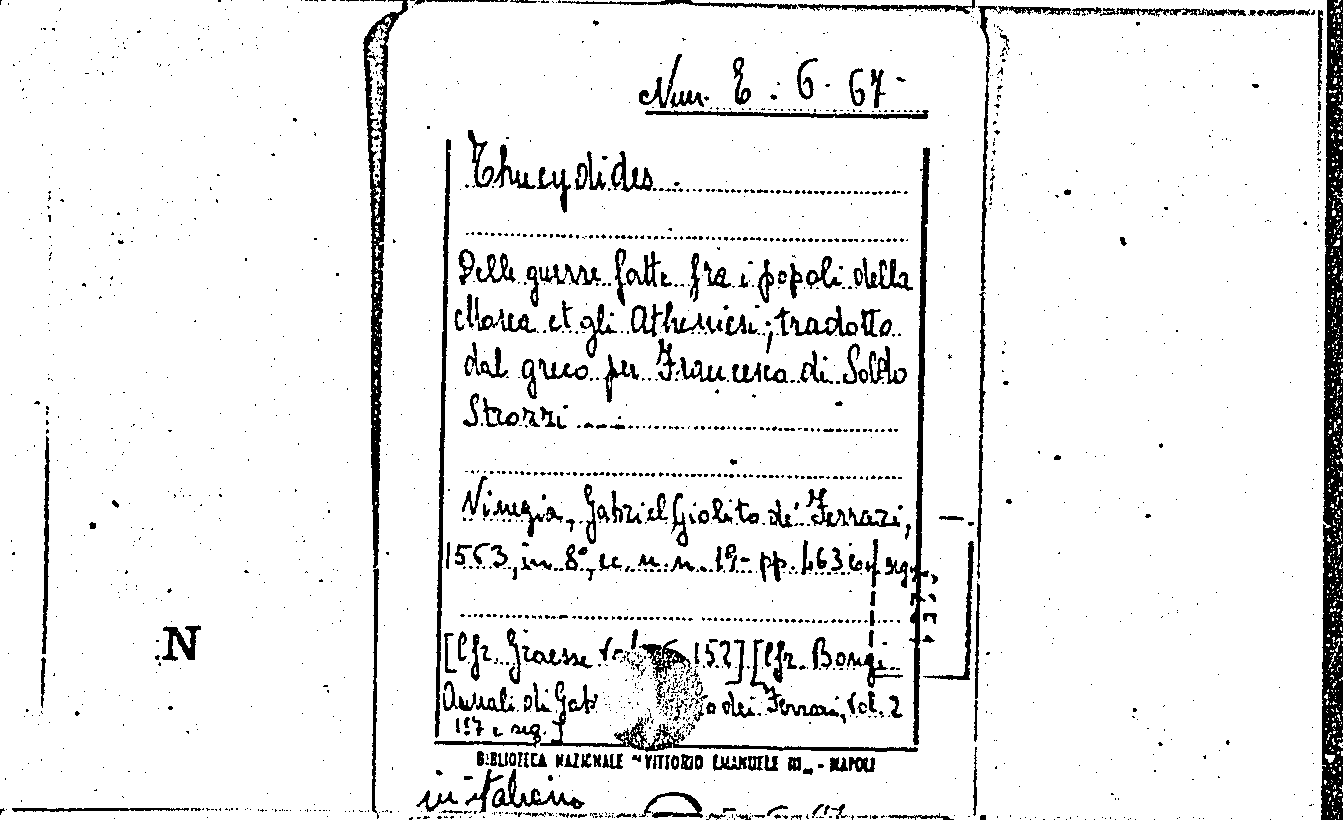 Num. E. 6. 67
Thucydides.
Delle guerre fatte fra i popoli della
Morea et gli Atheniesi; tradotto
dal greco per Francesco di Soldo
Strozzi ....
Vinegia, Gabriel Giolito de' Ferrari,
1563, in 8°, cc. n. n. 19 - pp. 463 e seg.
[Cfr. Graesse 152] [Cfr. Bongi
Annali di Gab o dei Ferrari, Vol. 2
e seg.]
N
BIBLIOTECA NAZIONALE "VITTORIO EMANUELE III" - NAPOLI
in italiano